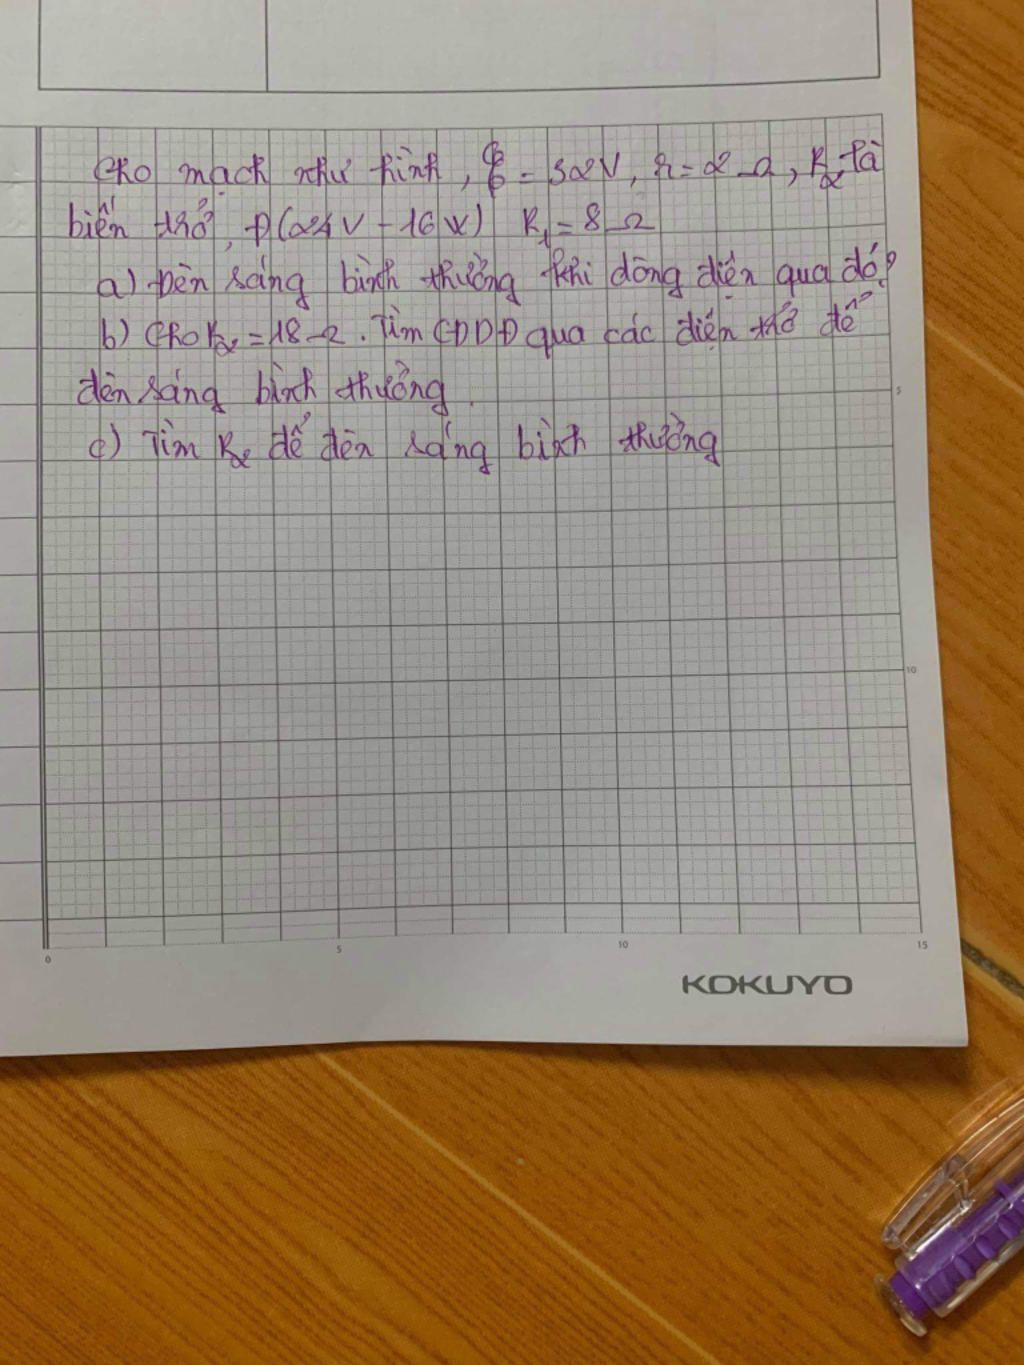 Cho mạch như hình, ξ = 32V, r = 2Ω, R₂ là
biến trở, Đ(24V - 16W) R₁ = 8Ω
a) Đèn sáng bình thường khi dòng điện qua đó?
b) Cho R₂ = 18Ω. Tìm CDDĐ qua các điện trở để
đèn sáng bình thường.
c) Tìm R₂ để đèn sáng bình thường
5
10
0
5
10
15
KOKUYO